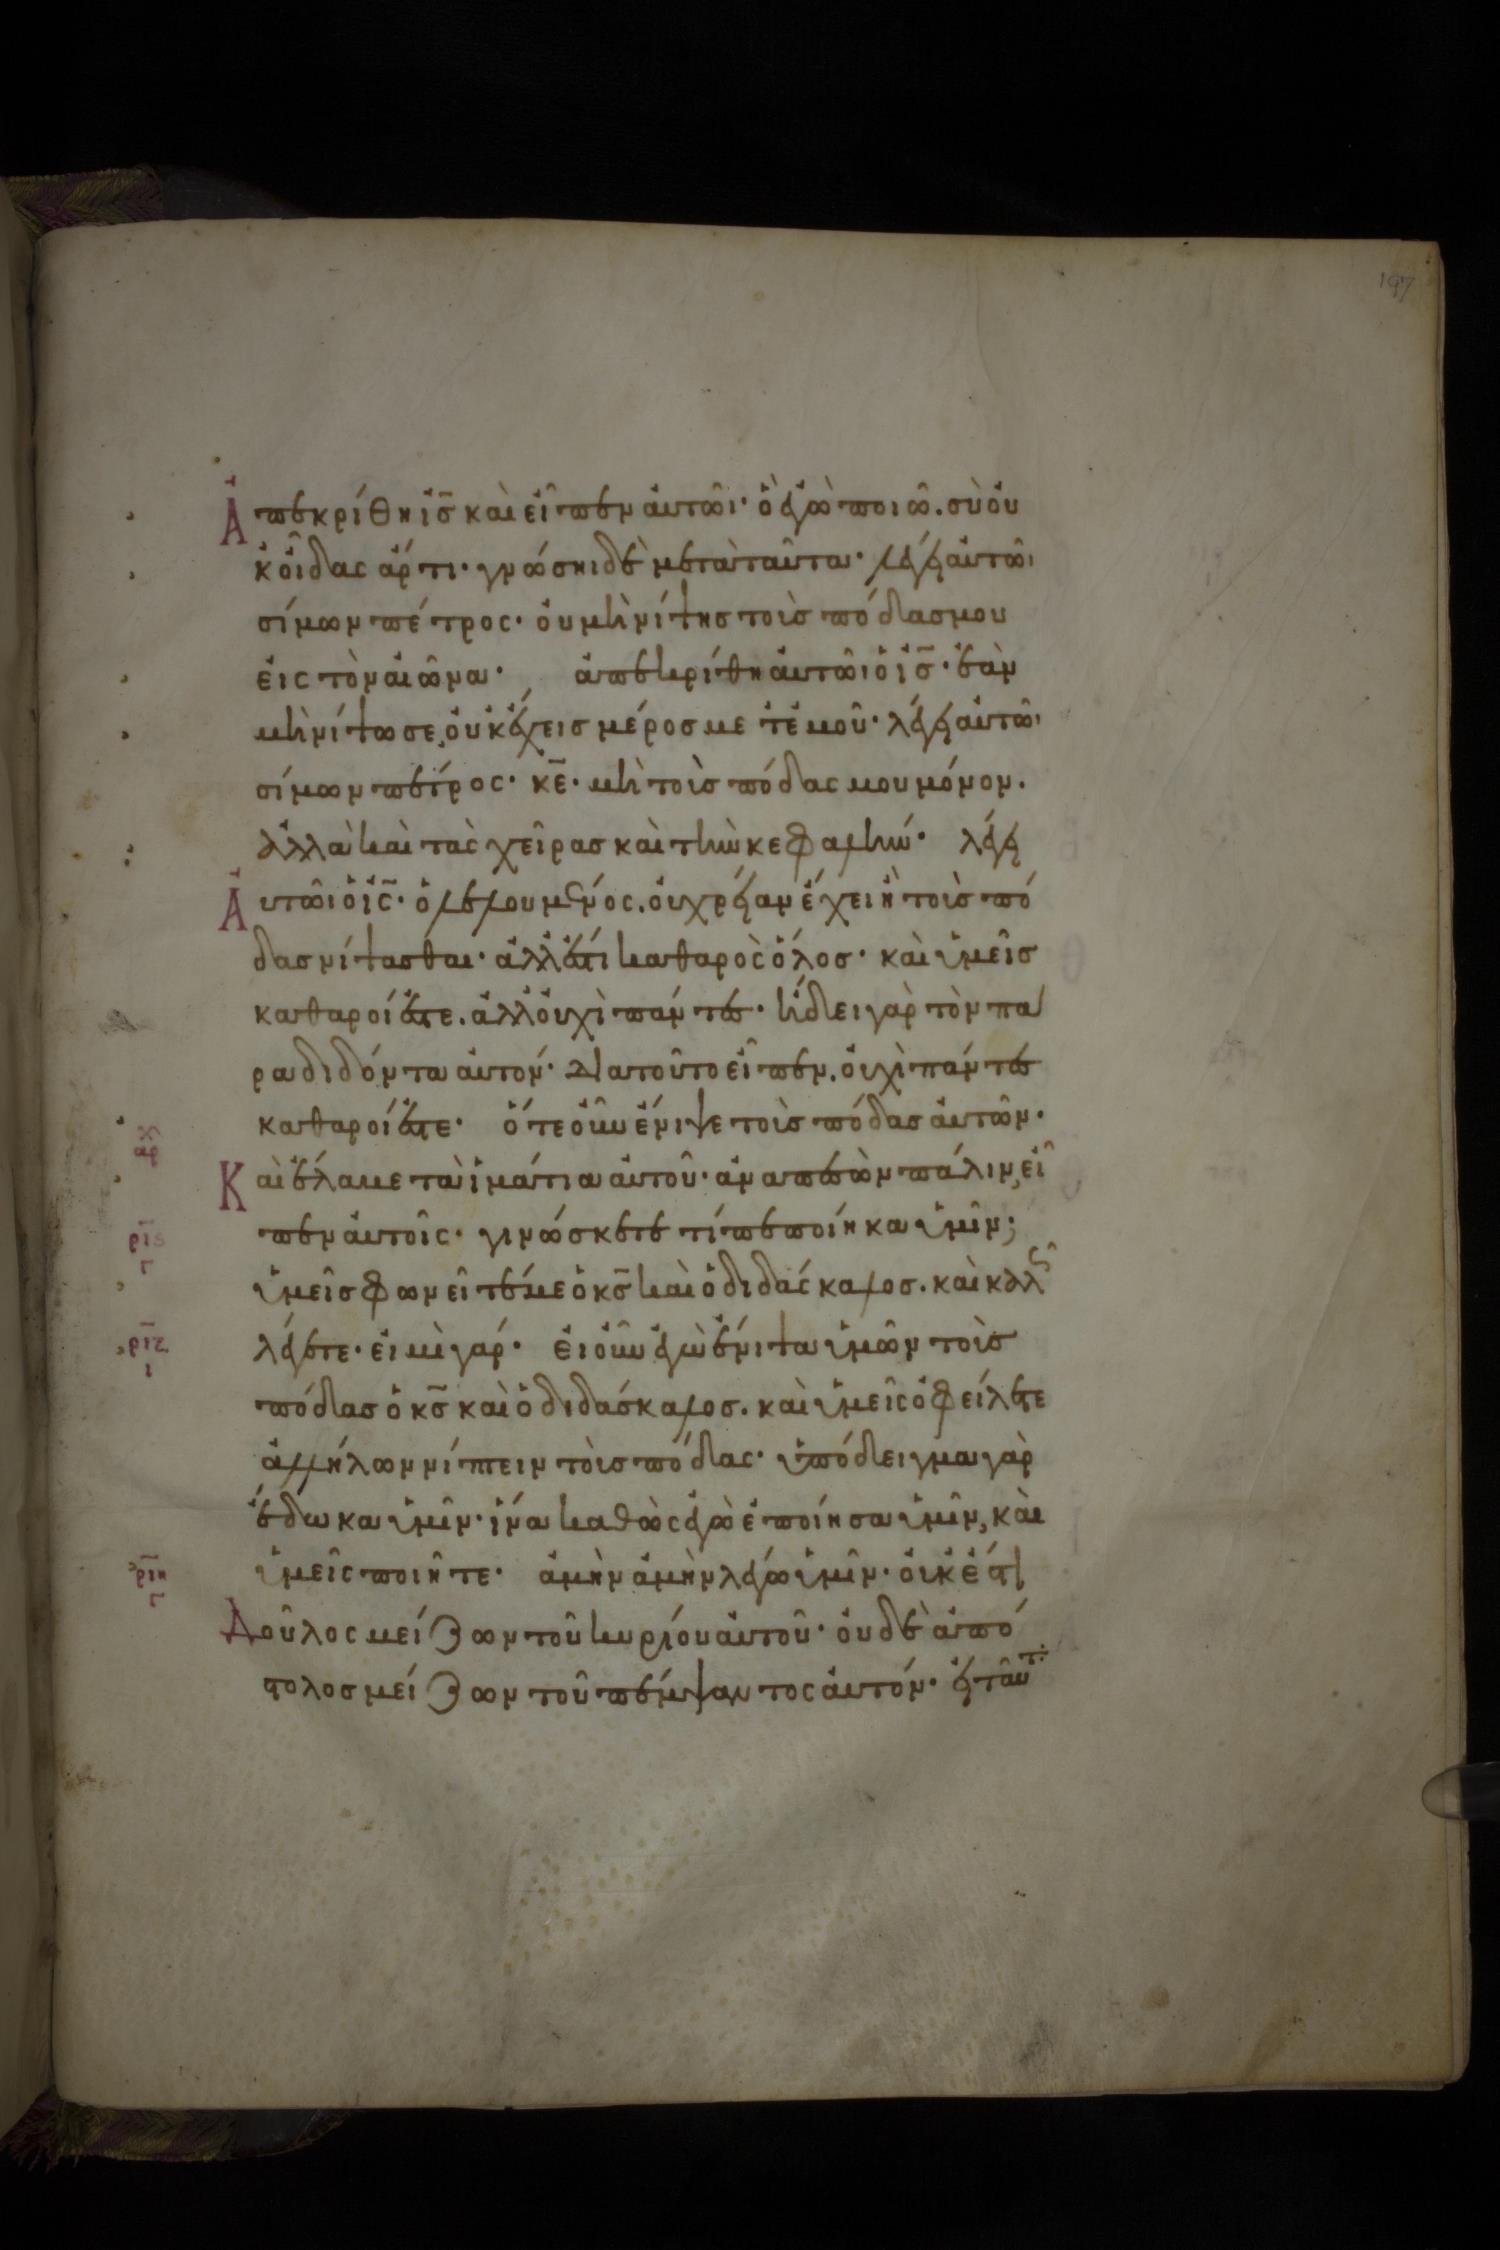 197
Ἀποκρίθη ἰς̅ καὶ εἶπεν αὐτῶι· ὃ ἐγὼ ποιῶ. σὺ οὐ
κ οἶδας ἄρτι· γνώσηι δὲ μετὰ ταῦτα· λέγει αὐτῶι
σίμων πέτρος· οὐ μὴ νίψης τοὺς πόδας μου
εἰς τὸν αἰῶνα· ἀπεκρίθη αὐτῶι ὁ ἰς̅· ἐὰν
μὴ νίψω σε, οὐκ ἔχεις μέρος μετ ἐμοῦ· λέγει αὐτῶι
σίμων πέτρος· κε̅· μὴ τοὺς πόδας μου μόνον.
ἀλλὰ καὶ τὰς χεῖρας καὶ τὴν κεφαλήν· λέγει
Αὐτῶι ὁ ἰς̅· ὁ λελουμένος. οὐ χρείαν ἔχει ἢ τοὺς πό
δας νίψασθαι· ἀλλ ἔστι καθαρὸς ὅλος· καὶ ὑμεῖς
καθαροί ἐστε. ἀλλ οὐχὶ πάντες· ἤδει γὰρ τὸν πα
ραδιδόντα αὐτόν· διατοῦτο εἶπεν. οὐχὶ πάντες
καθαροί ἐστε· ὅτε οὖν ἔνιψε τοὺς πόδας αὐτῶν·
Καὶ ἔλαβε τὰ ἱμάτια αὐτοῦ· ἀναπεσὼν πάλιν, εἶ
πεν αὐτοῖς· γινώσκετε τί πεποίηκα ὑμῖν;
ὑμεῖς φωνεῖτέ με ὁ κς̅ καὶ ὁ διδάσκαλος. καὶ καλῶς
λέγετε· εἰμὶ γάρ· εἰ οὖν ἐγὼ ἔνιψα ὑμῶν τοὺς
πόδας ὁ κς̅ καὶ ὁ διδάσκαλος. καὶ ὑμεῖς ὀφείλετε
ἀλλήλων νίπτειν τοὺς πόδας· ὑπόδειγμα γὰρ
ἔδωκα ὑμῖν· ἵνα καθὼς ἐγὼ ἐποίησα ὑμῖν, καὶ
ὑμεῖς ποιῆτε· ἀμὴν ἀμὴν λέγω ὑμῖν· οὐκ ἔστι
Δοῦλος μείζων τοῦ κυρίου αὐτοῦ· οὐδὲ ἀπό
στολος μείζων τοῦ πέμψαντος αὐτόν· εἰ ταῦτ
ἀρ
ρις̅
ριζ̅
ι
ριη̅